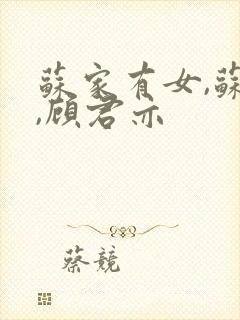 蘇家有女,蘇
,顾君亦
蔡競